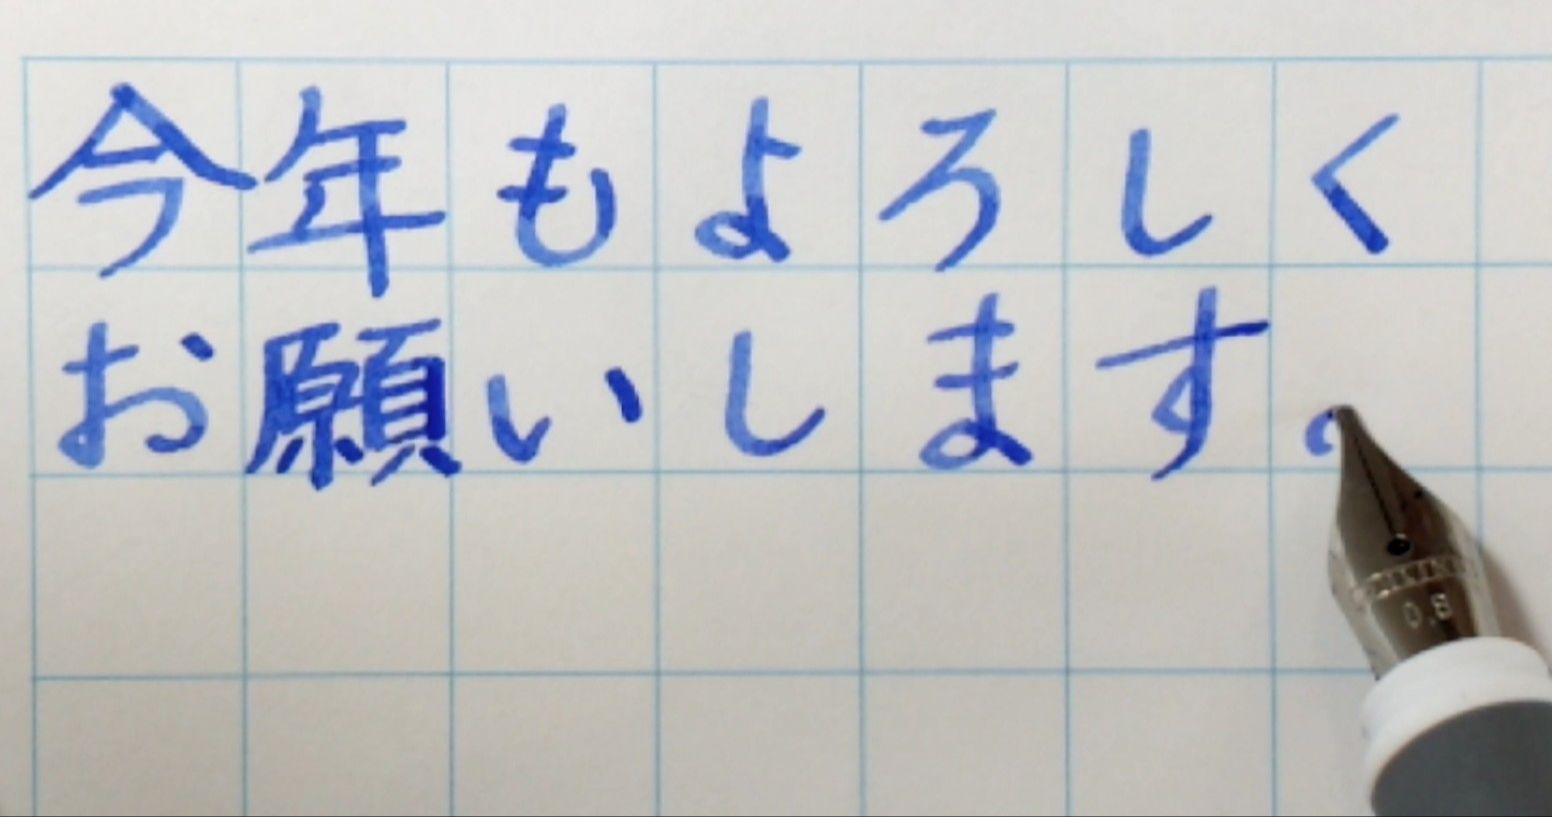 今年もよろしく
お願いします。
0.8